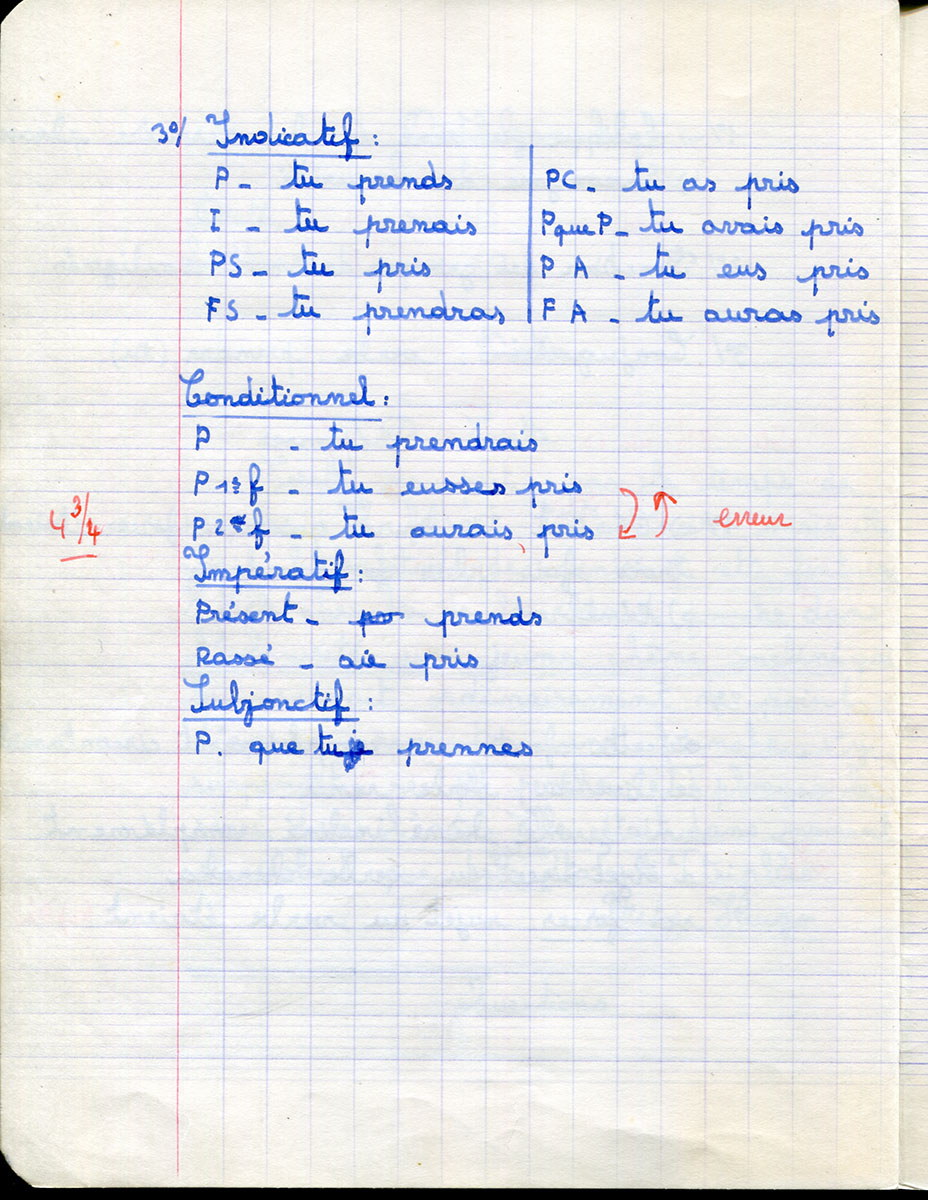 3°/ Indicatif :
P - tu prends
I - tu prenais
PS - tu pris
FS - tu prendras
PC - tu as pris
PqueP - tu avais pris
PA - tu eus pris
FA - tu auras pris
Conditionnel :
P - tu prendrais
P 1re f - tu eusses pris
P 2e f - tu aurais pris
erreur
4 3/4
Impératif :
Présent - prends
Passé - aie pris
Subjonctif :
P. que tu prennes